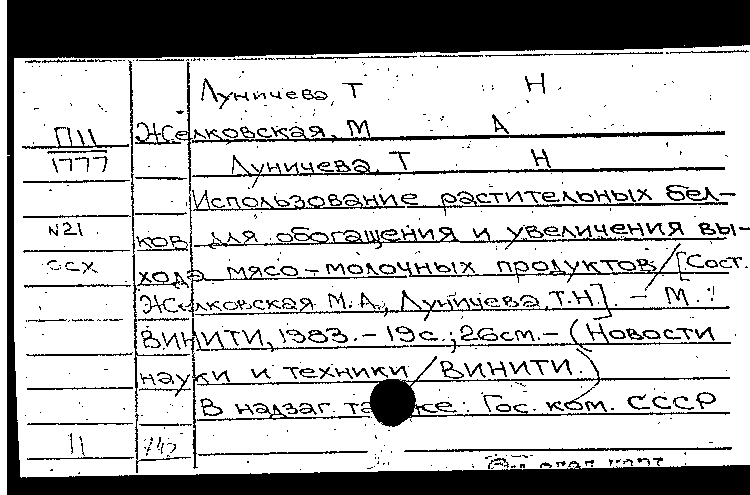 Луничева, Т Н
П11 Желковская, М А
1777 Луничева, Т Н
Использование растительных бел-
N21 ков для обогащения и увеличения вы-
ссх хода мясо-молочных продуктов / [Сост.
Желковская М.А., Луничева, Т.Н]. - М.:
ВИНИТИ, 1983. - 19с.; 26см. - (Новости
науки и техники / ВИНИТИ.)
В надзаг. также: Гос. ком. СССР
11